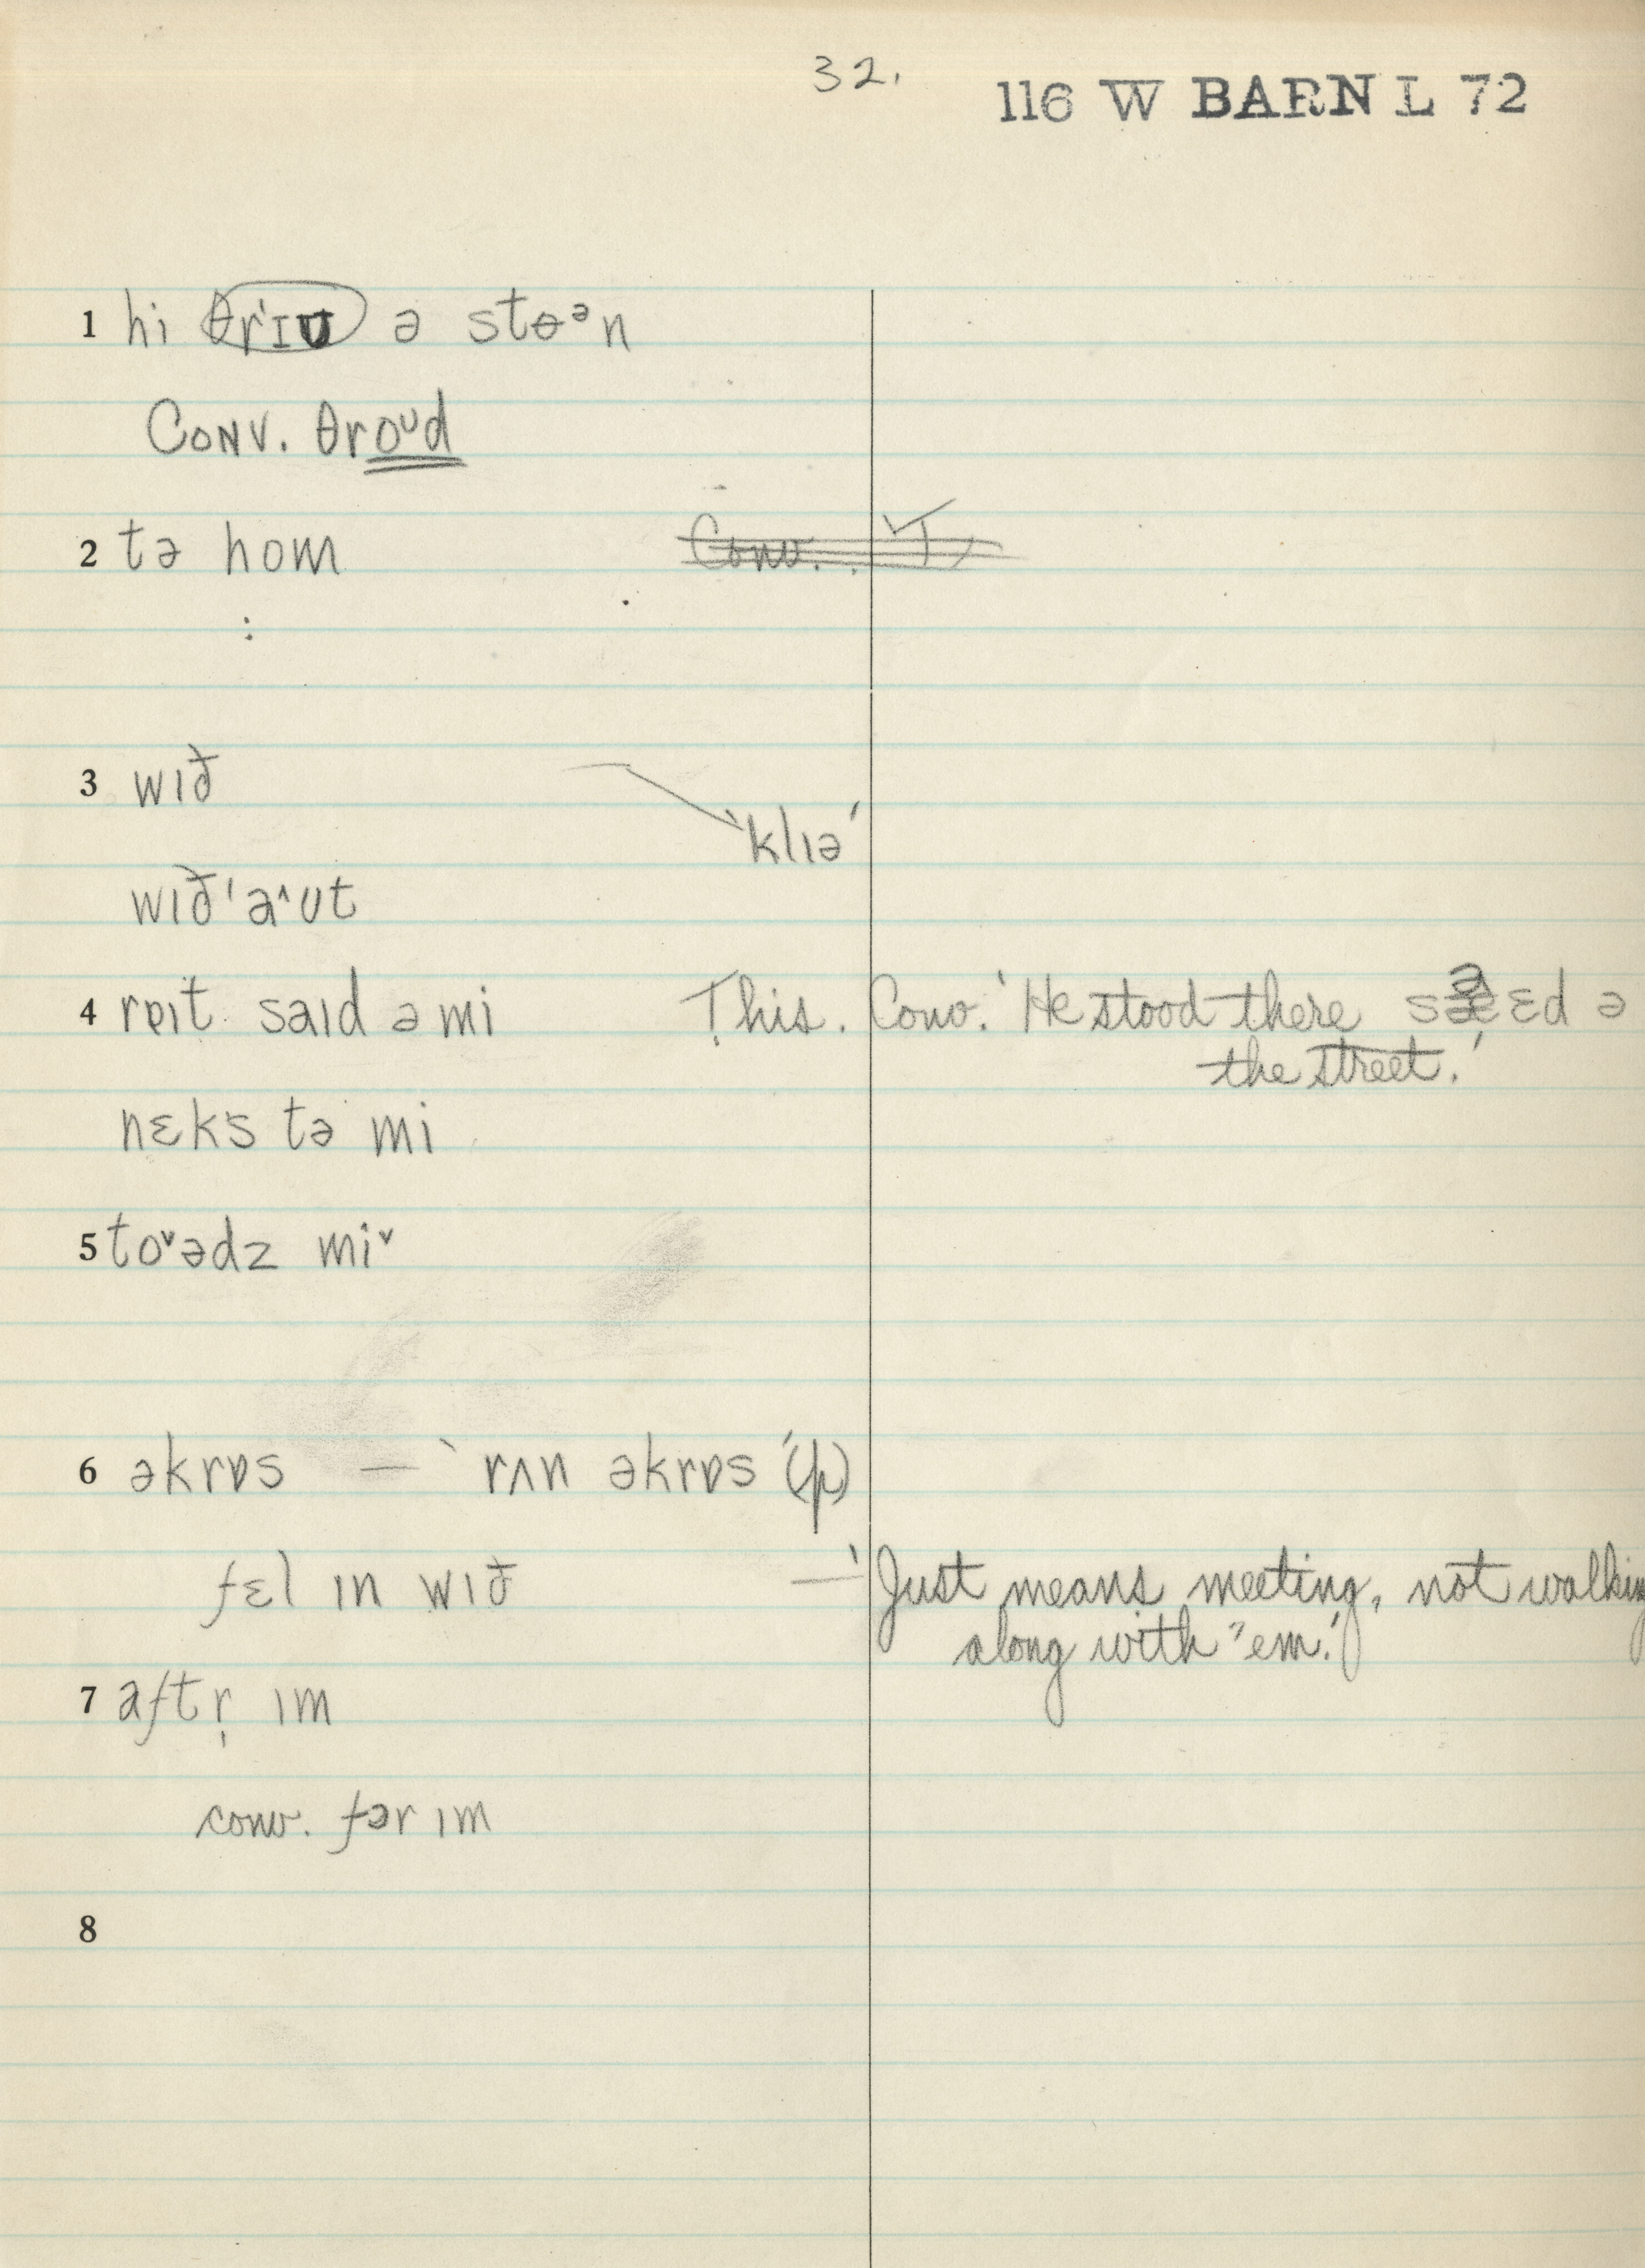 32.
116 W BARN L 72
1 hi θrɪʊ ə stɵᵊn
Conv. θroᶷd
2 tə hom Conv.
3 wɪð
'klɪə'
wɪð'a^ʊt
4 rɒɪt saɪd ə mi This. Conv. 'He stood there sɛd ə
the street.'
nɛks tə mi
5 toˇədz miˇ
6 əkrɒs — 'rʌn əkrɒs' (p)
fɛl ɪn wɪð — 'Just means meeting, not walking
along with 'em.'
7 aftr̩ ɪm
conv. fər ɪm
8